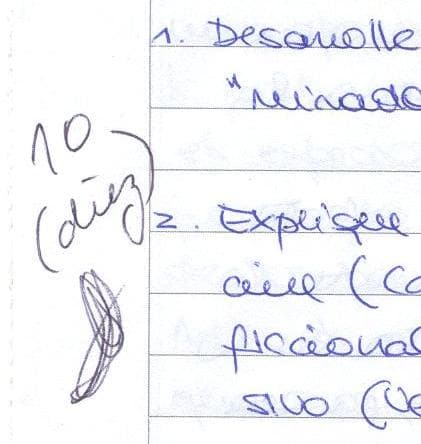 10
(diez)
1. Desarrolle
"mirado
2. Explique
cine (Co
ficcional
sivo (Ve